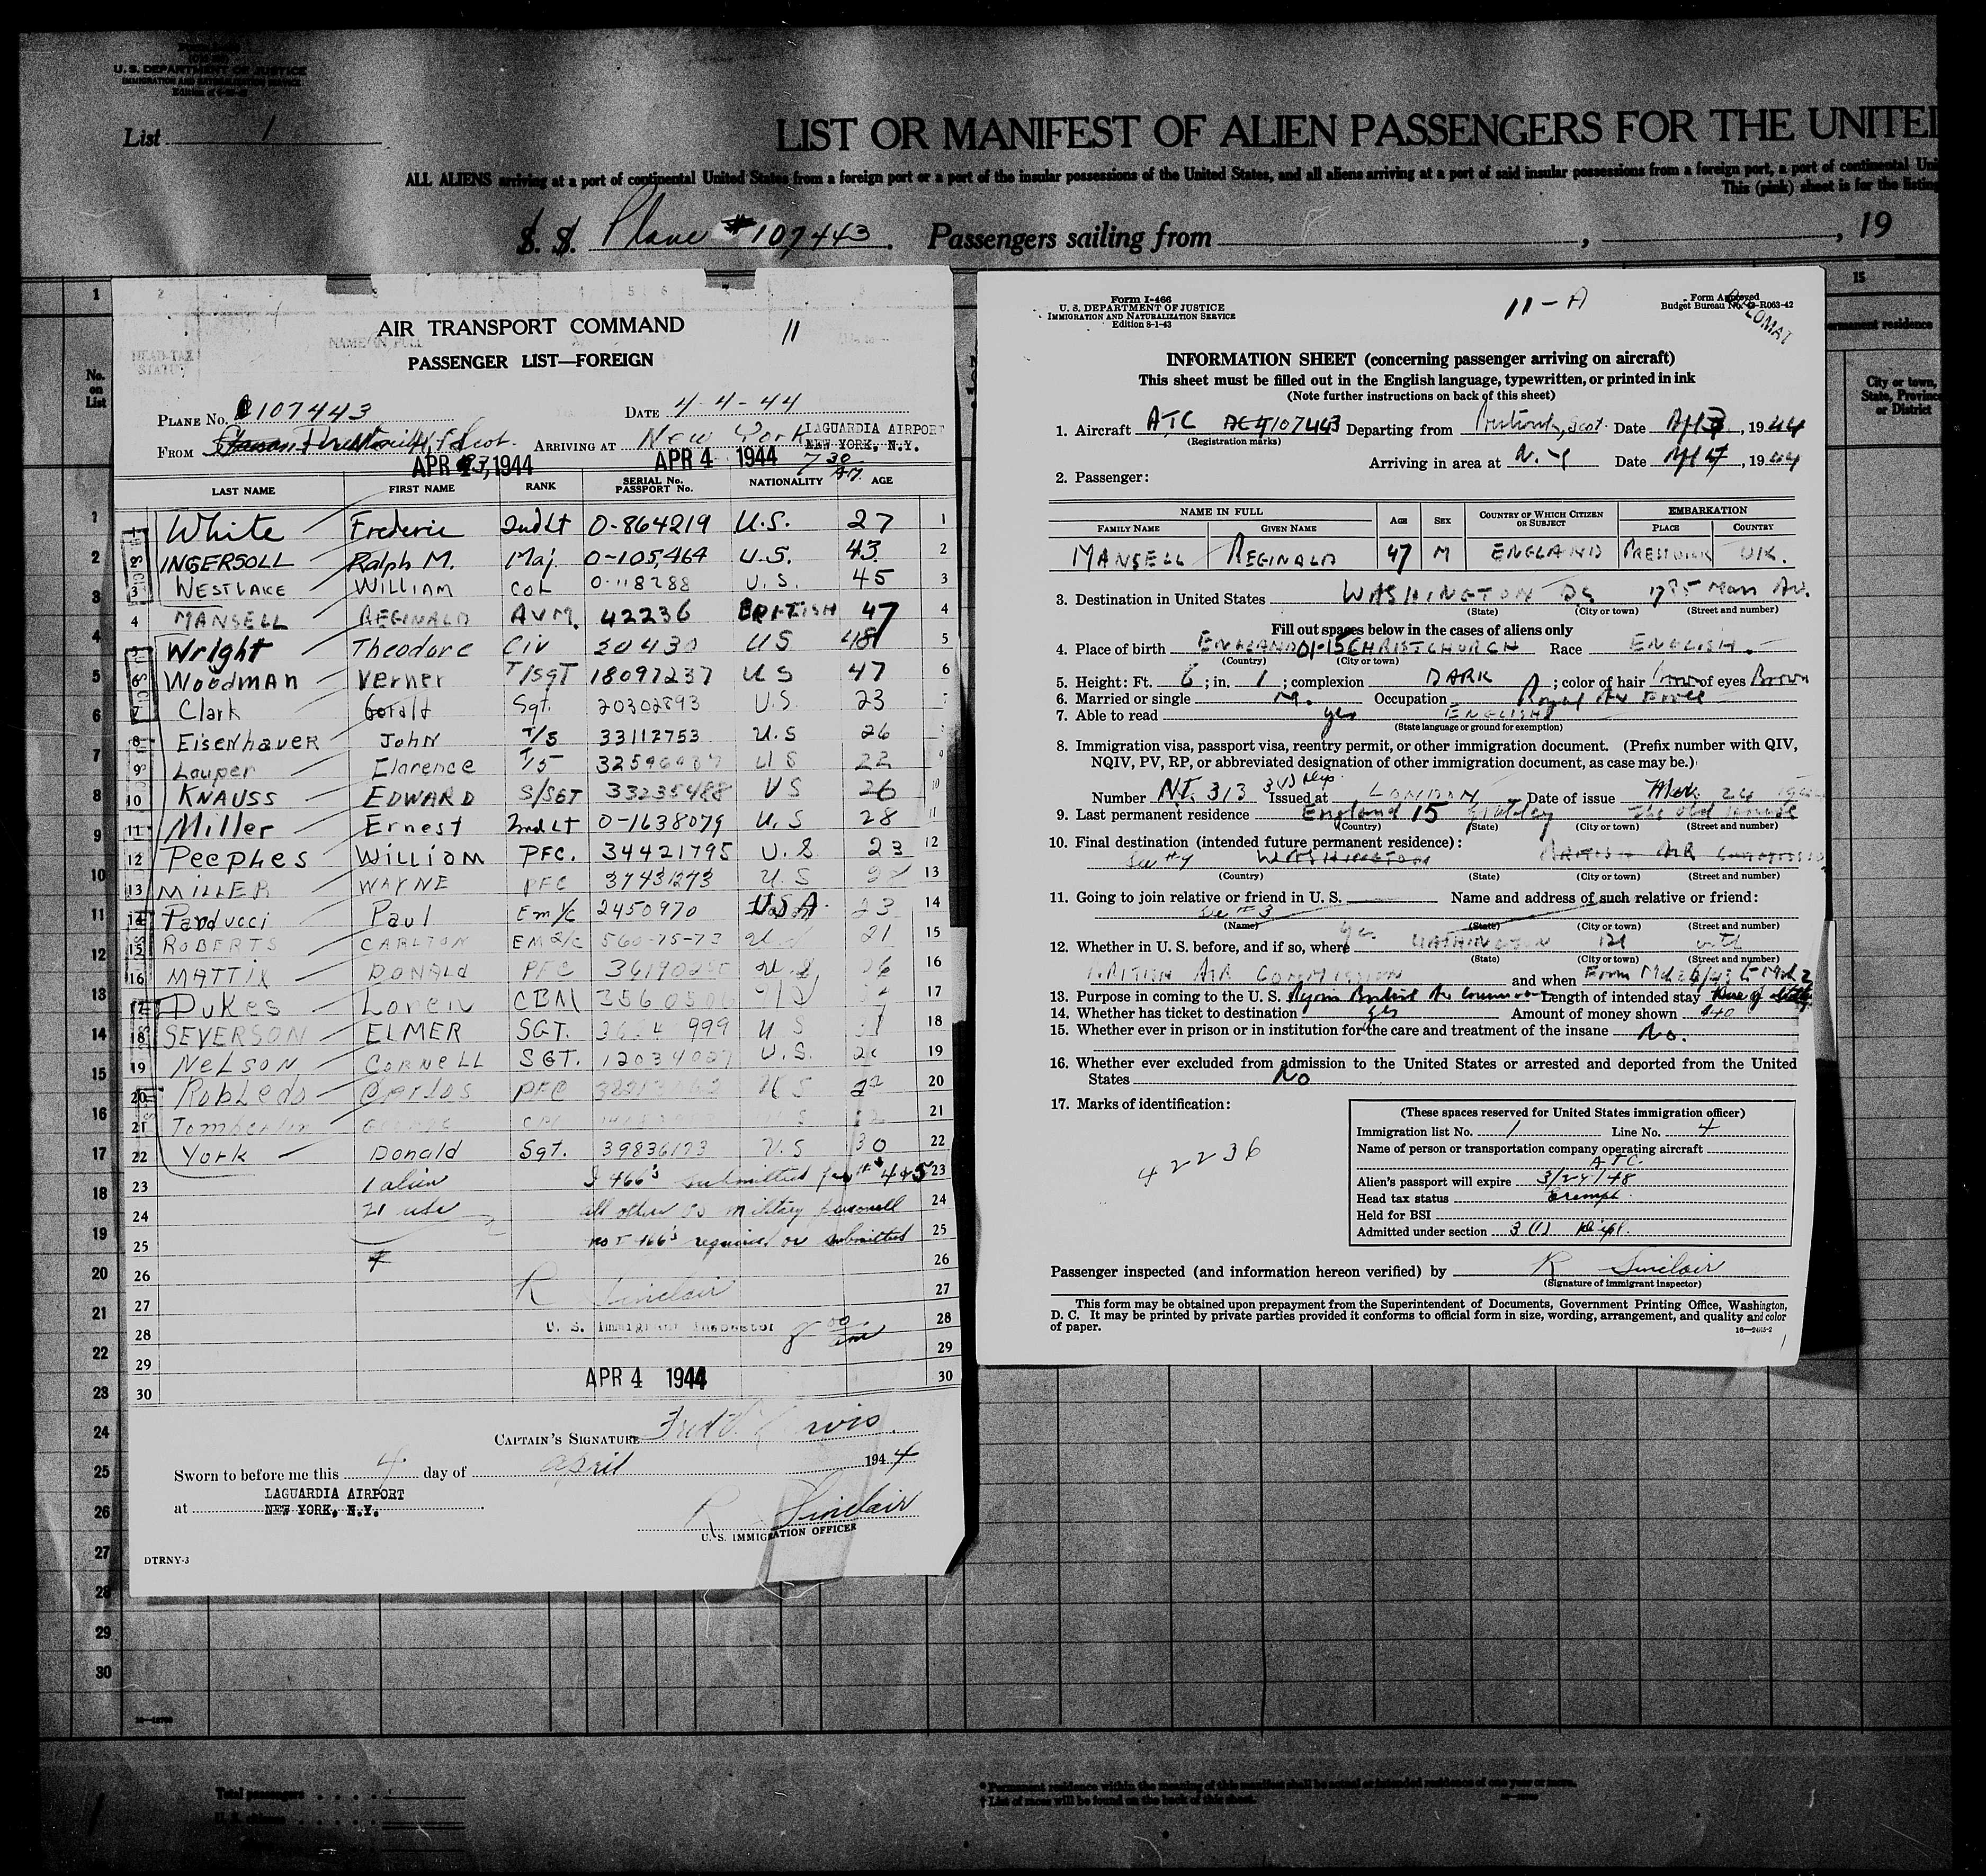 U. S. DEPARTMENT OF JUSTICE
IMMIGRATION AND NATURALIZATION SERVICE
List 1
LIST OR MANIFEST OF ALIEN PASSENGERS FOR THE UNITED
ALL ALIENS arriving at a port of continental United States from a foreign port or a port of the insular possessions of the United States, and all aliens arriving at a port of said insular possessions from a foreign port, a port of continental Uni
This (pink) sheet is for the listing
S. S. Plane #107443. Passengers sailing from , , 19
AIR TRANSPORT COMMAND 11
PASSENGER LIST—FOREIGN
PLANE No. 107443 DATE 4-4-44
FROM Scot. ARRIVING AT New York LAGUARDIA AIRPORT
NEW YORK, N.Y.
APR 3, 1944 APR 4 1944 7 30
LAST NAME FIRST NAME RANK SERIAL No. PASSPORT No. NATIONALITY AGE
1 White Frederic 2nd Lt 0-864219 U.S. 27 1
2 INGERSOLL Ralph M. Maj. 0-105,464 U.S. 43 2
3 WESTLAKE WILLIAM COL 0-118288 U.S. 45 3
4 MANSELL REGINALD A.V.M. 42236 BRITISH 47 4
5 Wright Theodore Civ 20430 US 48 5
6 Woodman Verner T/SGT 18097237 U S 47 6
7 Clark Gerald Sgt. 20302893 U.S. 23 7
8 EisenhaUER John T/5 33112753 U.S 26
9 Lauper Clarence T/5 U S 22 9
10 KNAUSS EDWARD S/SGT 33235488 US 26 10
11 Miller Ernest 2nd Lt 0-1638079 U.S 28 11
12 Peephes William PFC. 34421795 U.S. 23 12
13 MILLER WAYNE PFC 37431273 U.S 13
14 Parducci Paul Em 1/c 2450970 U.S.A. 23 14
15 ROBERTS CARLTON EM 2/c 560-75-73 21 15
16 MATTIX DONALD PFC U.S. 26 16
17 Dukes Loren CBM 17
18 SEVERSON ELMER SGT. U S 18
19 NELSON CORNELL SGT. U.S. 19
20 Robledo Carlos PFC U S 22 20
21 Tomberlin 21
22 York Donald Sgt. 39836173 U.S 30 22
23 1 alien I 466's submitted for #'s 4 & 5 23
24 21 usc all other US military personell 24
25 no I 466's required or submitted 25
26 26
27 R Sinclair 27
28 U. S. Immigrant Inspector 8 00 am 28
29 29
30 APR 4 1944 30
CAPTAIN'S SIGNATURE
Sworn to before me this 4 day of april 1944
at LAGUARDIA AIRPORT
NEW YORK, N.Y.
R Sinclair
U. S. IMMIGRATION OFFICER
DTRNY-3
Form I-466
U. S. DEPARTMENT OF JUSTICE
IMMIGRATION AND NATURALIZATION SERVICE
Edition 8-1-43
11-A
Form Approved
Budget Bureau No. 43-R063-42
DIPLOMAT
INFORMATION SHEET (concerning passenger arriving on aircraft)
This sheet must be filled out in the English language, typewritten, or printed in ink
(Note further instructions on back of this sheet)
1. Aircraft ATC 107443 Departing from Prestwick, Scot. Date Apl 3, 1944
(Registration marks)
Arriving in area at N.Y Date Apl 4, 1944
2. Passenger:
NAME IN FULL AGE SEX COUNTRY OF WHICH CITIZEN OR SUBJECT EMBARKATION
FAMILY NAME GIVEN NAME PLACE COUNTRY
MANSELL REGINALD 47 M ENGLAND PRESTWICK UK.
3. Destination in United States WASHINGTON DC 1785 Mass Av.
(State) (City or town) (Street and number)
Fill out spaces below in the cases of aliens only
4. Place of birth ENGLAND 01-15 CHRISTCHURCH Race ENGLISH.
(Country) (City or town)
5. Height: Ft. 6; in. 1; complexion DARK; color of hair brown of eyes Brown
6. Married or single M. Occupation Royal Air Force
7. Able to read yes ENGLISH
(State language or ground for exemption)
8. Immigration visa, passport visa, reentry permit, or other immigration document. (Prefix number with QIV,
NQIV, PV, RP, or abbreviated designation of other immigration document, as case may be.)
Number NI. 313 3(1) dip. Issued at LONDON Date of issue Mch. 24
9. Last permanent residence England 15 The Old House
(Country) (State) (City or town) (Street and number)
10. Final destination (intended future permanent residence):
WASHINGTON BRITISH AIR COMMISSION
(Country) (State) (City or town) (Street and number)
11. Going to join relative or friend in U. S. Name and address of such relative or friend:
See # 3
(Name) (State) (City or town) (Street and number)
12. Whether in U. S. before, and if so, where yes WASHINGTON with
(State) (City or town) (Street and number)
BRITISH AIR COMMISSION and when From
13. Purpose in coming to the U. S. Rejoin British Air Commission Length of intended stay
14. Whether has ticket to destination yes Amount of money shown $40
15. Whether ever in prison or in institution for the care and treatment of the insane No.
16. Whether ever excluded from admission to the United States or arrested and deported from the United
States No
17. Marks of identification:
42236
(These spaces reserved for United States immigration officer)
Immigration list No. 1 Line No. 4
Name of person or transportation company operating aircraft
ATC.
Alien's passport will expire 3/24/48
Head tax status Exempt
Held for BSI
Admitted under section 3 (1) Dipl.
Passenger inspected (and information hereon verified) by R Sinclair
(Signature of immigrant inspector)
This form may be obtained upon prepayment from the Superintendent of Documents, Government Printing Office, Washington,
D. C. It may be printed by private parties provided it conforms to official form in size, wording, arrangement, and quality and color
of paper.
15
permanent residence
City or town,
State, Province
or District
No. on List
Total passengers
* Permanent residence within the meaning of this manifest shall be actual or intended residence of one year or more.
† List of races will be found on the back of this sheet.